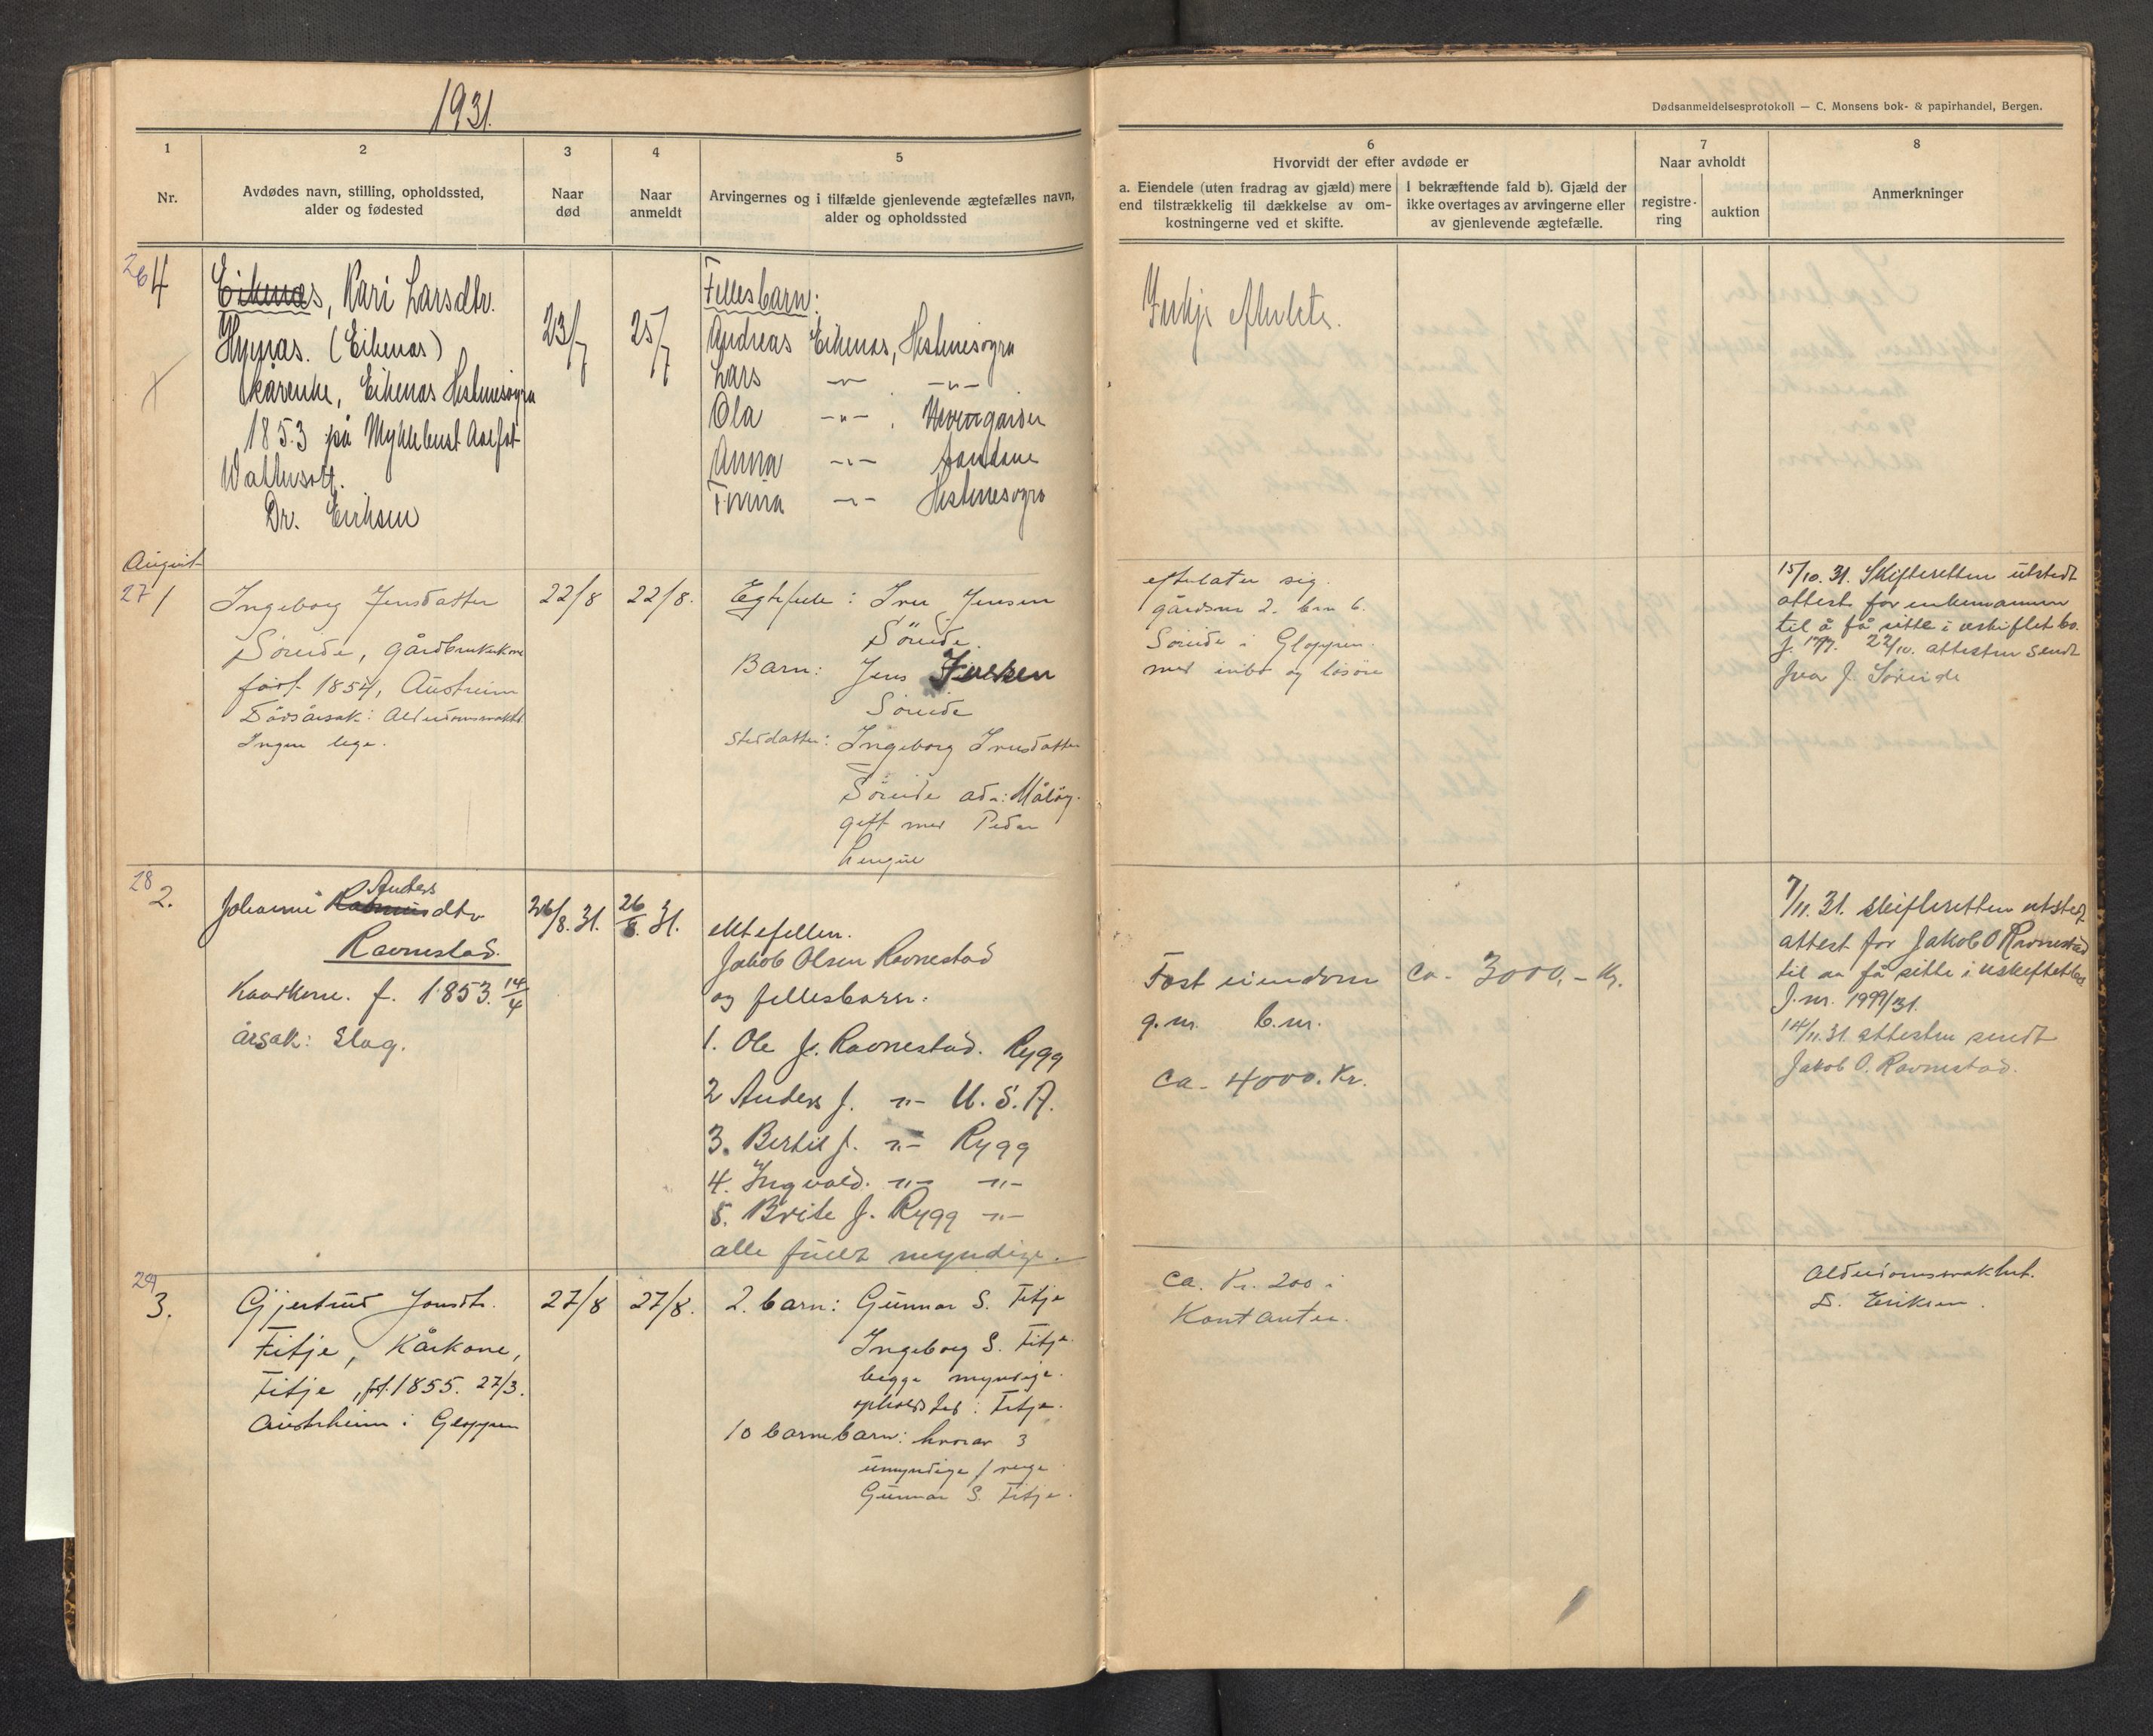 1931.
Dødsanmeldelsesprotokoll — C. Monsens bok- & papirhandel, Bergen.
1
Nr.
2
Avdødes navn, stilling, opholdssted,
alder og fødested
3
Naar
død
4
Naar
anmeldt
5
Arvingernes og i tilfælde gjenlevende ægtefælles navn,
alder og opholdssted
6
Hvorvidt der efter avdøde er
a. Eiendele (uten fradrag av gjæld) mere
end tilstrækkelig til dækkelse av om-
kostningerne ved et skifte.
I bekræftende fald b). Gjæld der
ikke overtages av arvingerne eller
av gjenlevende ægtefælle.
7
Naar avholdt
registre-
ring
auktion
8
Anmerkninger
26 4
Eikenæs, Kari Larsdtr.
(Eikenas)
Eikenas Hestenesøyra
1853 på Myklebust Aalfot
Vattersott.
Dr. Eriksen
23/7
25/7
Fellesbarn:
Andreas Eikenas, Hestenesøyra
Lars -"- -"-
Ola -"-
Anna -"- Sandane
-"- Hestenesøyra
August
27 1
Ingeborg Jensdatter
Söreide, gårdbrukerkone
født 1854, Austreim
Dödsårsak: Alderdomssvakhet
Ingen lege.
22/8
22/8.
Egtefelle: Iver Jensen
Söreide.
Barn: Jens Iversen
Söreide
Stedatter: Ingeborg Iversdatter
Söreide adr: Måløy.
gift med Peder
efterlater sig.
gårdsnr 2. brnr 6.
Söreide i Gloppen.
med inbo og lösöre
15/10. 31. Skifteretten utstedt
attest for enkemannen
til å få sitte i uskiftet bo.
22/10. attesten sendt
Iver J. Söreide
28 2.
Johanne Andersdtr.
Ravnestad.
Kaarkone. f. 1853. 14/4
årsak: Slag.
26/8. 31.
26/8. 31.
ektefellen.
Jakob Olsen Ravnestad
og fellesbarn:
1. Ole J. Ravnestad. Rygg
2 Anders J. -"- U.S.A.
3. Bertil J. -"- Rygg
4. Ingvald. -"- -"-
5. Brite J. Rygg -"-
alle fullt myndige.
Fast eiendom
g.nr. b.nr.
Ca. 4000. Kr.
Ca. 3000.- Kr.
7/11. 31. skifteretten utstedt
attest for Jakob O Ravnestad
til aa få sitte i uskiftet bo
J.nr. 1999/31.
14/11. 31. attesten sendt
Jakob O. Ravnestad.
29 3.
Gjertrud Jonsdtr.
Fitje, Kårkone,
Fitje, født 1855. 27/3.
Austrheim i Gloppen
27/8
27/8.
2. barn: Gunnar S. Fitje
Ingeborg S. Fitje.
begge myndige.
opholdssted: Fitje.
10 barnebarn: hvorav 3
umyndige / verge
Gunnar S. Fitje.
Ca. Kr. 200 i
Kontanter.
Alderdomssvakhet.
D. Eriksen.